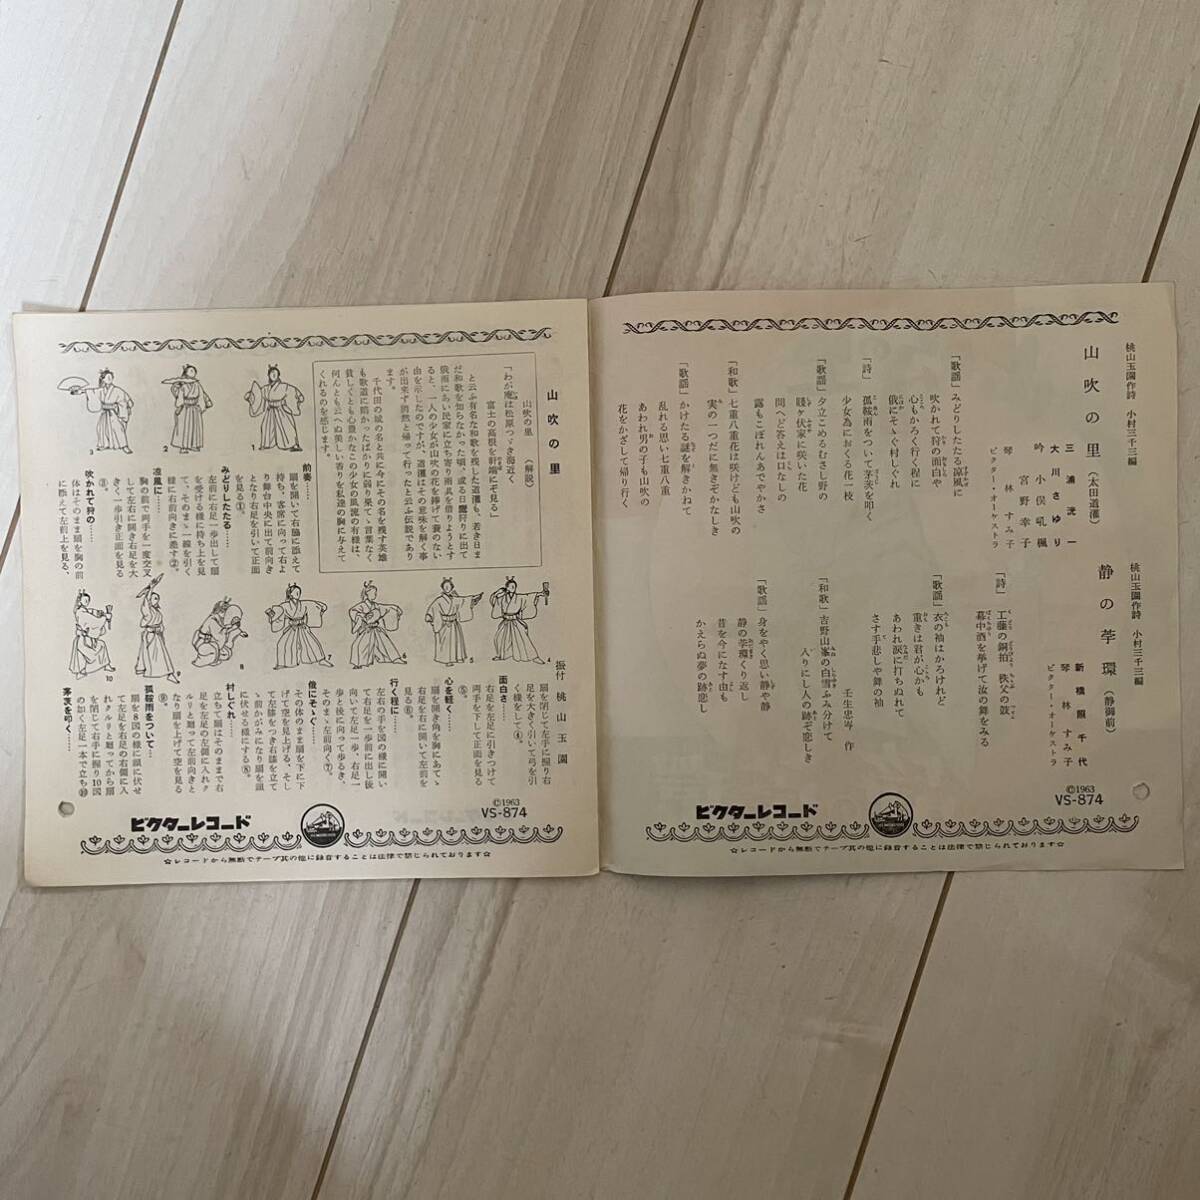 桃山玉園作詩　小村三千三編
山吹の里（太田道灌）
三浦洸一
大川さゆり
吟　小俣吼楓
宮野幸子
琴　林すみ子
ビクター・オーケストラ
「歌謡」みどりしたたる涼風に
吹かれて狩の面白や
心もかろく行く程に
俄にそゝぐ村しぐれ
「詩」
孤鞍雨をついて茅茨を叩く
少女為におくる花一枝
「歌謡」夕立こめるむさし野の
賤ヶ伏家に咲いた花
問へど答えは口なしの
露もこぼれんあでやかさ
「和歌」七重八重花は咲けども山吹の
実の一つだに無きぞかなしき
「歌謡」かけたる謎を解きかねて
乱れる思い七重八重
あわれ男の子も山吹の
花をかざして帰り行く
桃山玉園作詩　小村三千三編
静の苧環（静御前）
新橋照千代
琴　林すみ子
ビクター・オーケストラ
「詩」
工藤の銅拍　秩父の鼓
幕中酒を挙げて汝の舞をみる
「歌謡」衣の袖はかろけれど
重きは君が心かも
あわれ涙に打ちぬれて
さす手悲しや舞の袖
壬生忠岑　作
「和歌」吉野山峯の白雪ふみ分けて
入りにし人の跡ぞ恋しき
「歌謡」身をやく思い静や静
静の苧環くり返し
昔を今になす由も
かえらぬ夢の跡恋し
©1963
VS-874
ビクターレコード
☆レコードから無断でテープ其の他に録音することは法律で禁じられております☆
山吹の里
山吹の里　（解説）
「わが庵は松原つゞき海近く
富士の高根を軒端にぞ見る」
と云ふ有名な和歌を残した道灌も、若き日ま
だ和歌を知らなかった頃、或る日鷹狩りに出て
俄雨にあい民家に立ち寄り雨具を借りようとす
ると、一人の少女が山吹の花を捧げて蓑のない
由を示したのですが、道灌はその意味を解く事
が出来ず憤然と帰って行ったと云ふ伝説であり
ます。
千代田の城の名と共に今にその名を残す英雄
も歌道に暗かったばかりに弱り果てゝ言葉なく
貧しくとも心豊かなこの少女の風流の有様は、
何んとも云へぬ美しい香りを私達の胸に与えて
くれるのを感じます。
1
2
3
前奏……
扇を開いて右脇に添えて
持ち、客席に向って右よ
り舞台中央に出て前向き
となり右足を引いて正面
を見る①。
みどりしたたる……
左前に右足一歩出して扇
を受ける様に持ち上を見
て、そのまゝ一線を引く
様に右前向きに翳す②。
凉風に……
胸の前で両手を一度交叉
して左右に開き右足を大
きく一歩引き正面を見る
③。
吹かれて狩の……
体はそのまま扇を胸の前
に添えて左前上を見る、
4
5
6
7
8
9
10
振付　桃山玉園
扇を閉じて左手に握り右
足を大きく引いて弓を引
く様をして④。
面白さ……
右足を左足に引きつけて
両手を下して正面を見る
⑤。
心を軽く……
扇を開き角を胸にあてゝ
右足を右に開いて左前を
見る⑥。
行く程に……
左右の手を図の様に開い
て右足を一歩前に出し後
向いて左足一歩、右足一
歩と後に向って歩るき、
そのまゝ左前向く⑦。
俄にそゝぐ……
その体のまま扇を下に下
げて空を見上げる、そし
て左膝をつき右膝を立て
ゝ前かがみになり扇を頭
に伏せる様にする⑧。
村しぐれ……
立ちて扇はそのままで右
足を左足の左側に入れク
ルリと廻って左前向きと
なり扇を上げて空を見る
⑨。
孤鞍雨をついて……
扇を８図の様に頭に伏せ
て左足を右足の右側に入
れクルリと廻ってから扇
を閉じて右手に握り10図
の如く左足一本で立ち⑩
茅茨を叩く……
©1963
VS-874
ビクターレコード
☆レコードから無断でテープ其の他に録音することは法律で禁じられております☆